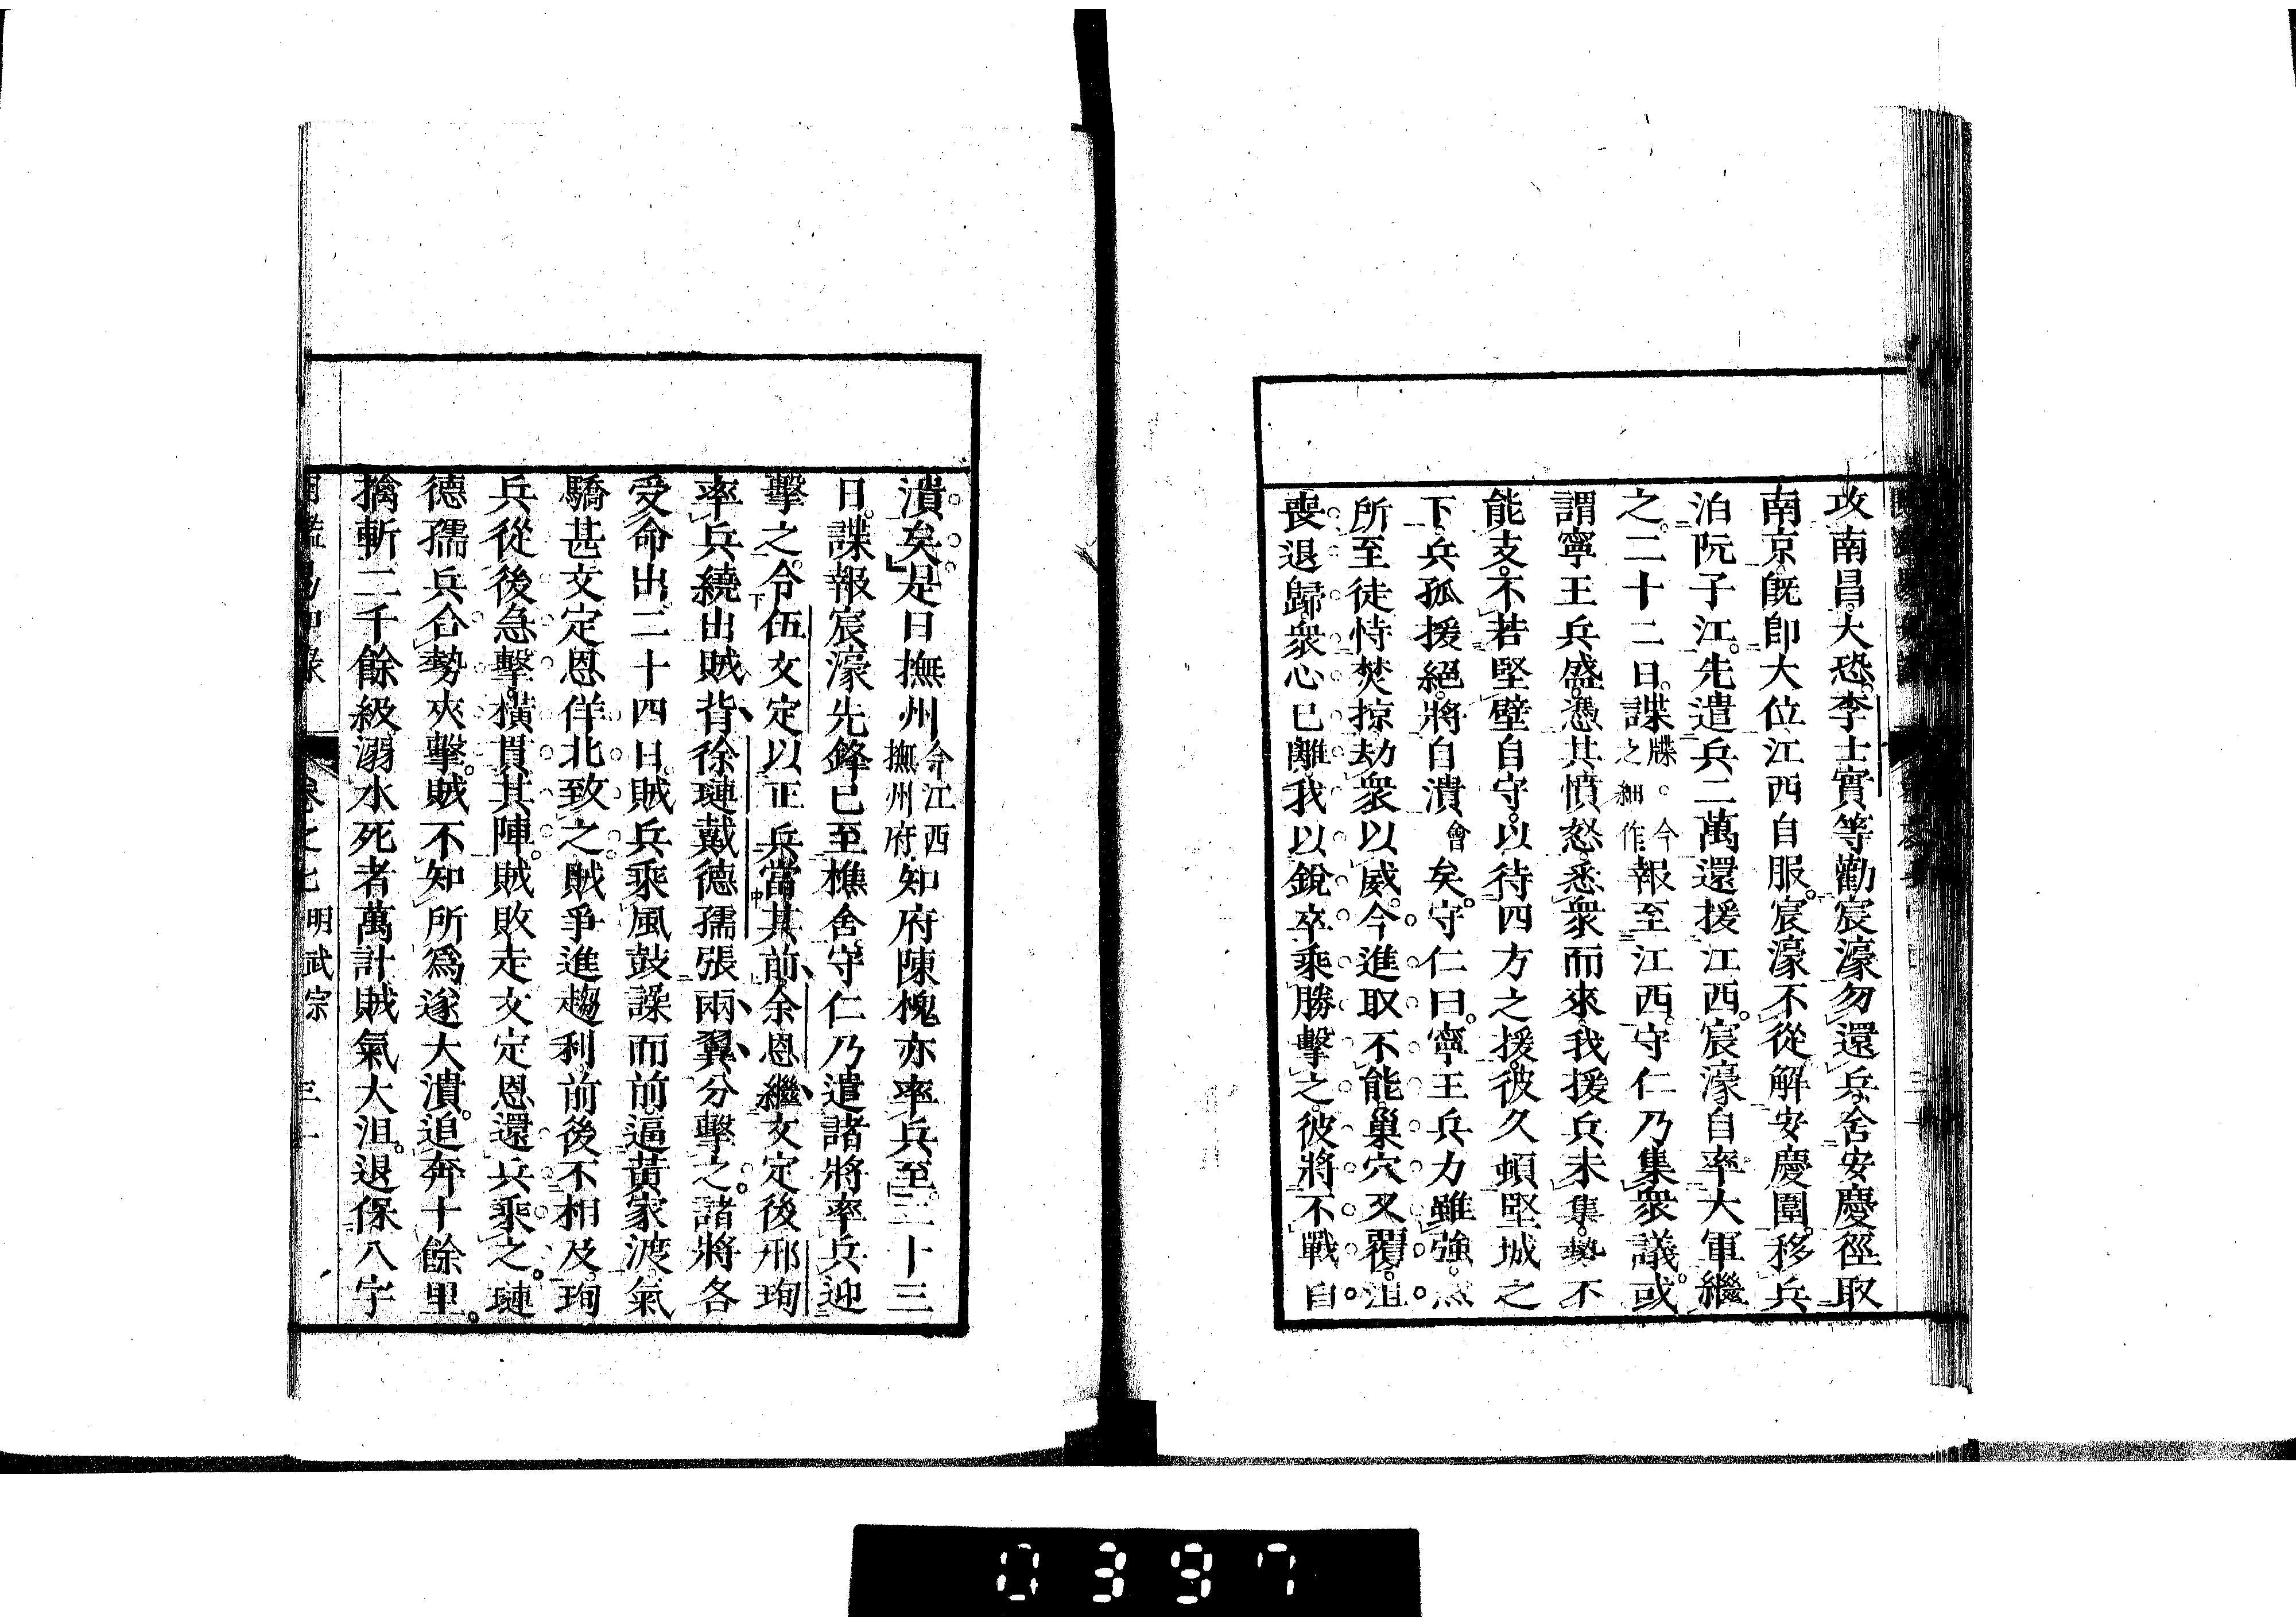 攻南昌大恐李士實等勸宸濠勿還兵舍安慶徑取
南京旣卽大位江西自服宸濠不從解安慶圍移兵
泊阮子江先遣兵二萬還援江西宸濠自率大軍繼
之二十二日諜牒今之細作報至江西守仁乃集衆議或
謂寧王兵盛憑其憤怒悉衆而來我援兵未集勢不
能支不若堅壁自守以待四方之援彼久頓堅城之
下兵孤援絕將自潰會矣守仁曰寧王兵力雖強然
所至徒恃焚掠劫衆以威今進取不能巢穴又覆沮
喪退歸衆心已離我以銳卒乘勝擊之彼將不戰自
潰矣是日撫州今江西撫州府知府陳槐亦率兵至二十三
日諜報宸濠先鋒已至樵舍守仁乃遣諸將率兵迎
擊之令伍文定以正兵當其前余恩繼文定後邢珣
率兵繞出賊背徐璉戴德孺張兩翼分擊之諸將各
受命出二十四日賊兵乘風鼓譟而前逼黃家渡氣
驕甚文定恩佯北致之賊爭進趨利前後不相及珣
兵從後急擊橫貫其陣賊敗走文定恩還兵乘之璉
德孺兵合勢夾擊賊不知所爲遂大潰追奔十餘里
擒斬二千餘級溺水死者萬計賊氣大沮退保八字
卷之七 明武宗
0397